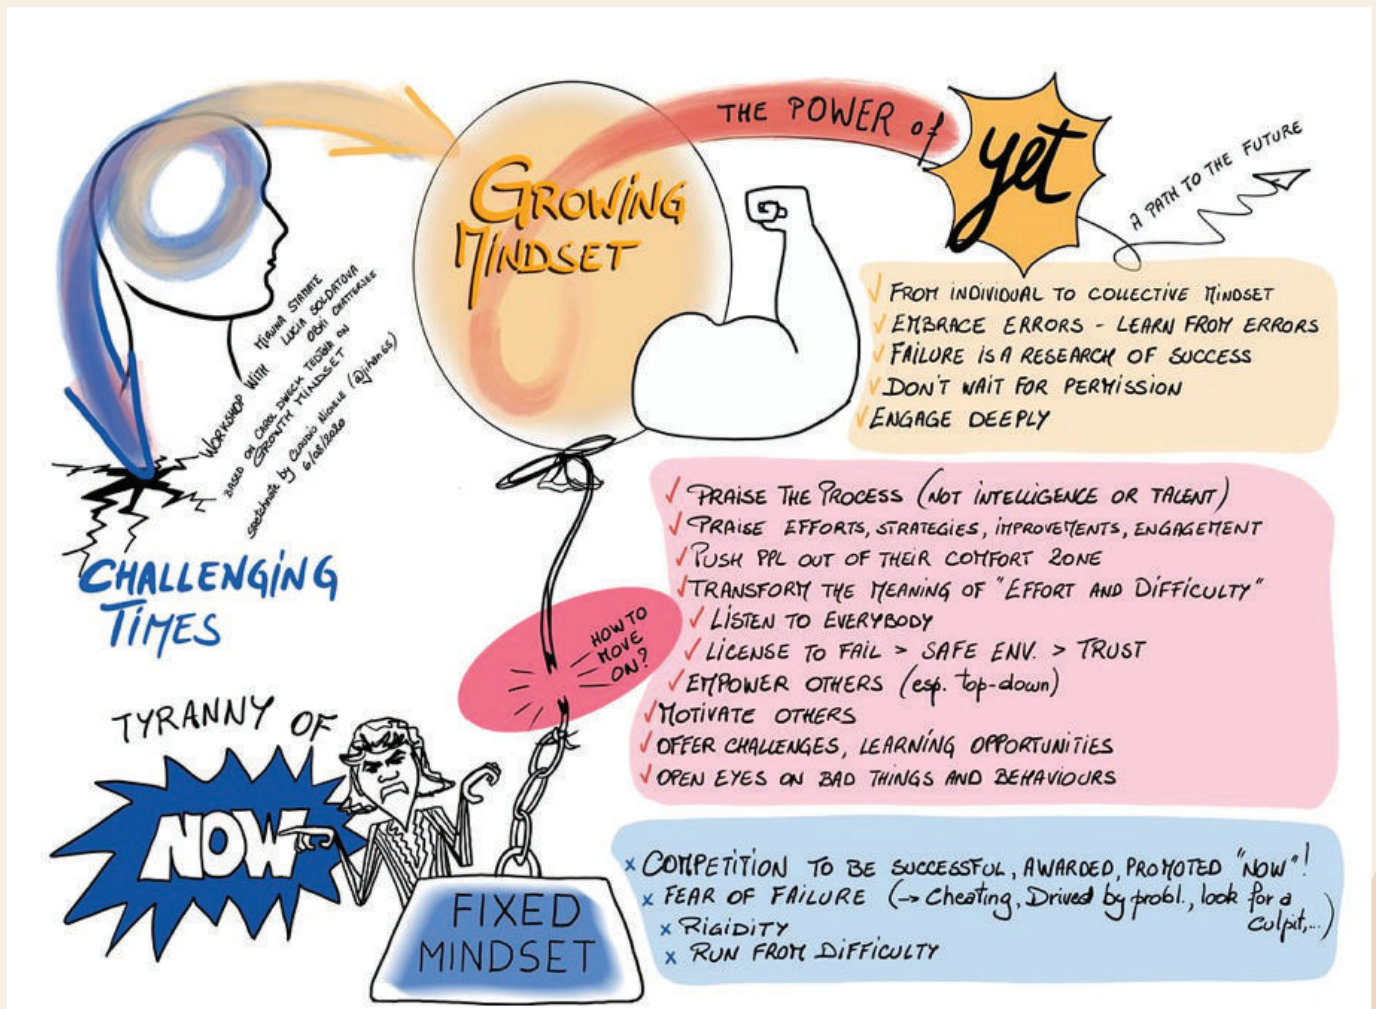 THE POWER of
yet
A PATH TO THE FUTURE
GROWING
MINDSET
WORKSHOP WITH
MIRUNA STAMATE
LUCIA SOLDATOVA
OBHI CHATTERJEE
BASED ON CAROL DWECK TEDTALK ON
GROWTH MINDSET
sketchnote by CLAUDIO NICHELE (@jihan65)
6/08/2020
✓ FROM INDIVIDUAL TO COLLECTIVE MINDSET
✓ EMBRACE ERRORS - LEARN FROM ERRORS
✓ FAILURE IS A RESEARCH OF SUCCESS
✓ DON'T WAIT FOR PERMISSION
✓ ENGAGE DEEPLY
CHALLENGING
TIMES
HOW TO
MOVE
ON?
✓ PRAISE THE PROCESS (NOT INTELLIGENCE OR TALENT)
✓ PRAISE EFFORTS, STRATEGIES, IMPROVEMENTS, ENGAGEMENT
✓ PUSH PPL OUT OF THEIR COMFORT ZONE
✓ TRANSFORM THE MEANING OF "EFFORT AND DIFFICULTY"
✓ LISTEN TO EVERYBODY
✓ LICENSE TO FAIL > SAFE ENV. > TRUST
✓ EMPOWER OTHERS (esp. top-down)
✓ MOTIVATE OTHERS
✓ OFFER CHALLENGES, LEARNING OPPORTUNITIES
✓ OPEN EYES ON BAD THINGS AND BEHAVIOURS
TYRANNY OF
NOW
FIXED
MINDSET
x COMPETITION TO BE SUCCESSFUL, AWARDED, PROMOTED "NOW"!
x FEAR OF FAILURE (→ Cheating, Drived by probl., look for a
culpit,...)
x RIGIDITY
x RUN FROM DIFFICULTY